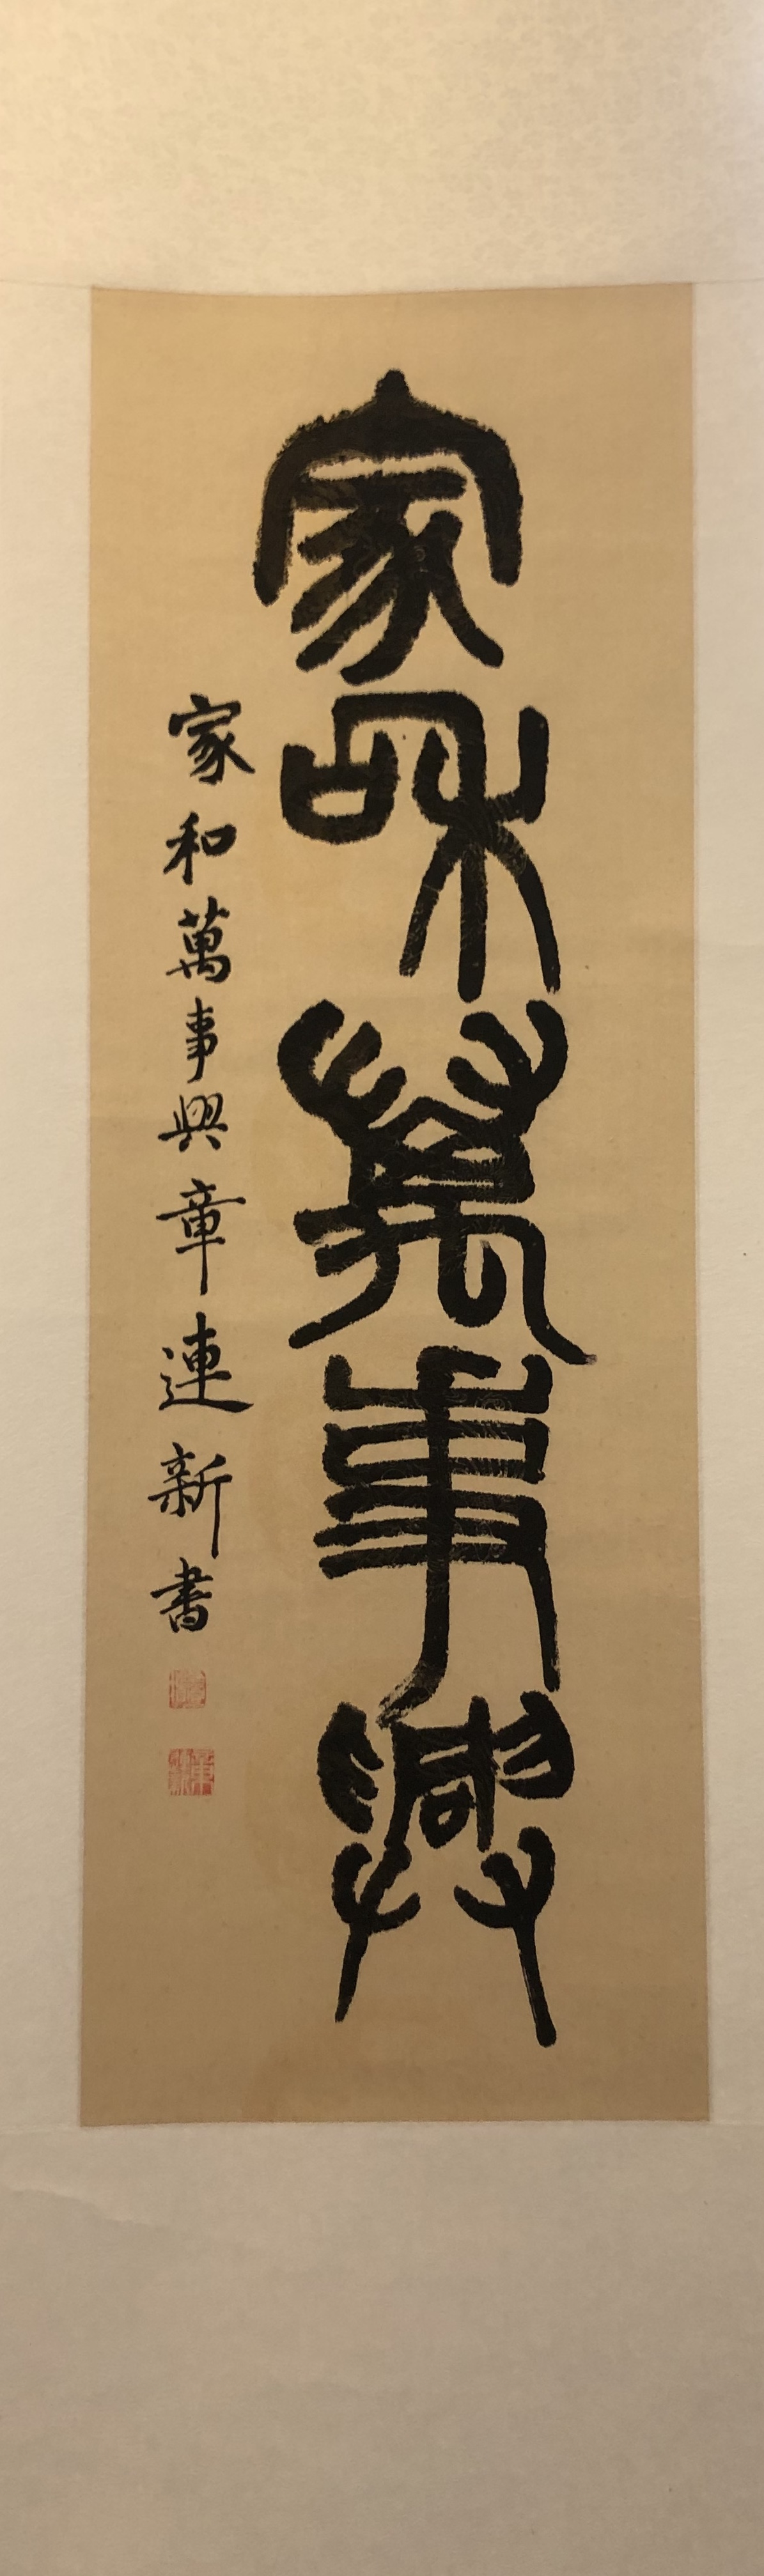 家和萬事興
家和萬事興章連新書